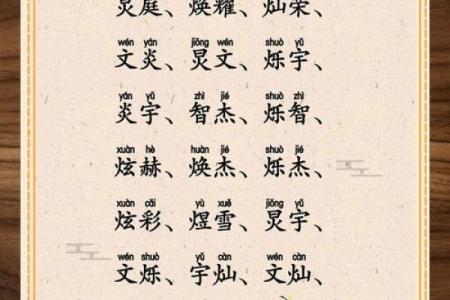 炅庭、焕耀、灿荣、
wén yán jiǒng wén shuò yǔ
文炎、炅文、烁宇、
yán yǔ zhì jié shuò zhì
炎宇、智杰、烁智、
xuàn hè huàn jié shuò jié
炫赫、焕杰、烁杰、
xuàn cǎi yù xuě jiǒng yǔ
炫彩、煜雪、炅宇、
wén shuò yǔ càn wén càn
文烁、宇灿、文灿、